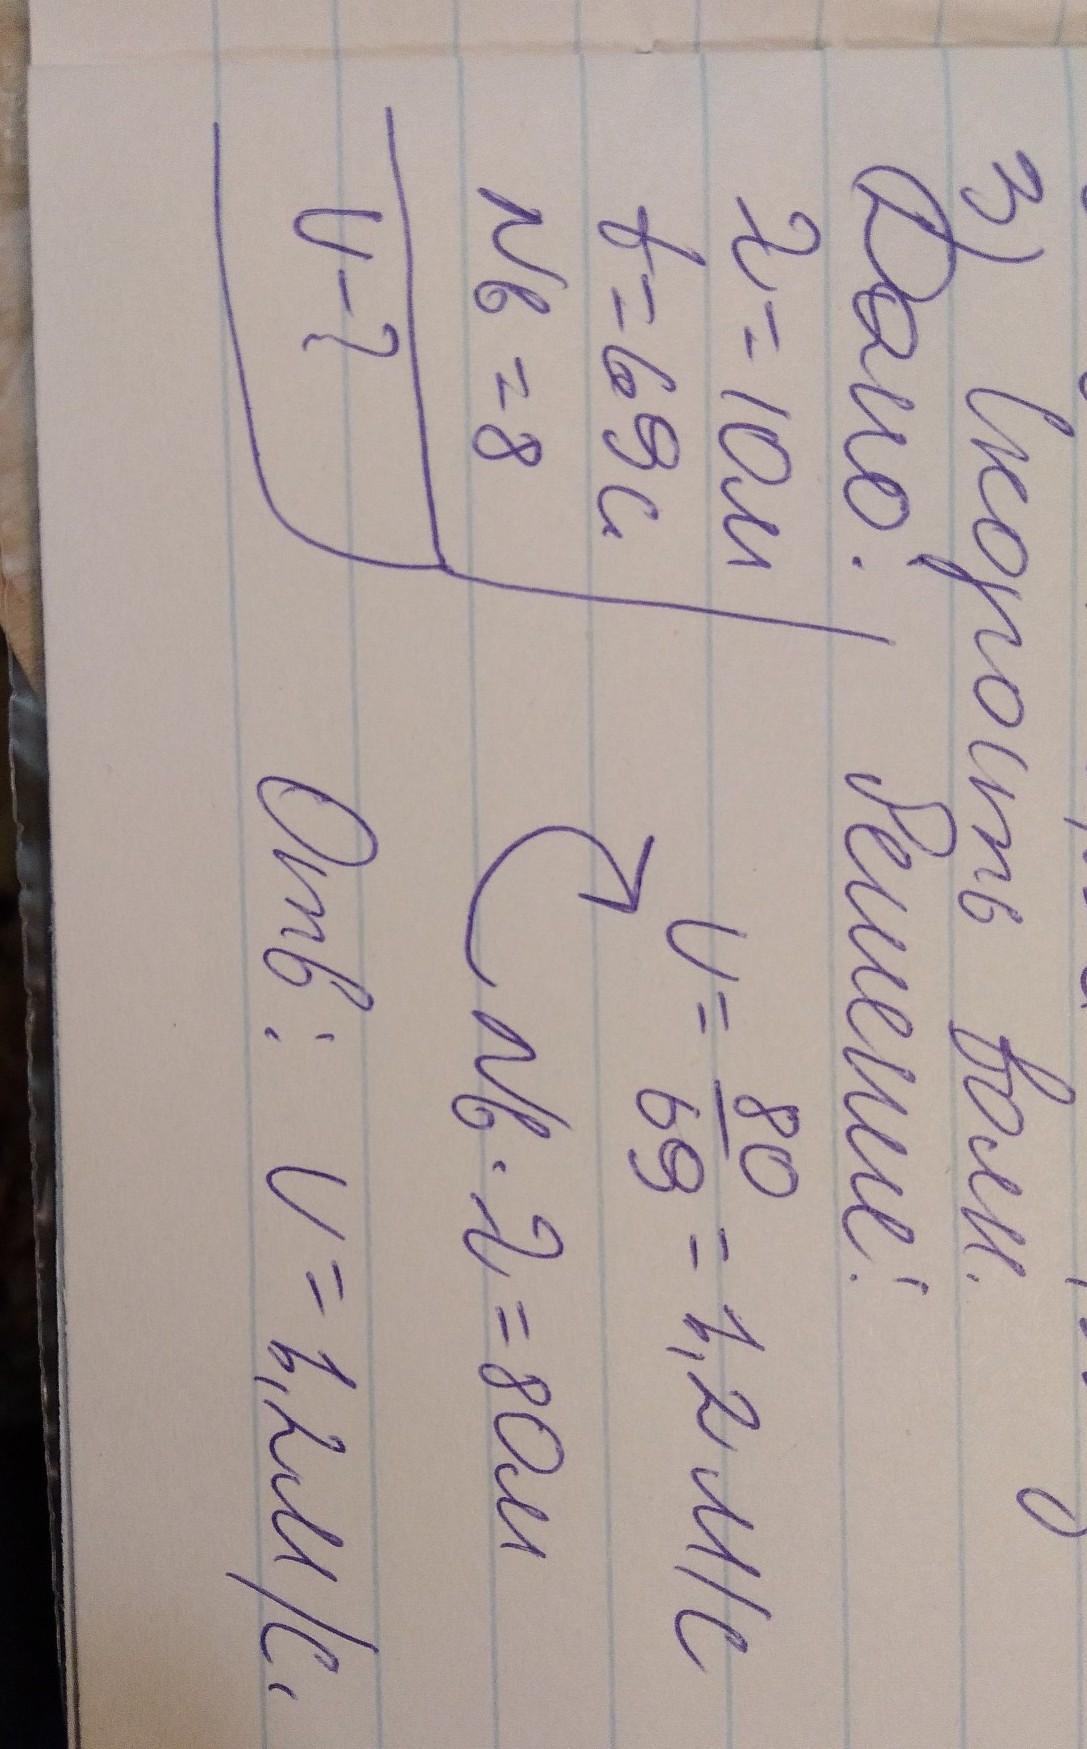 3) Скорость волн.
Дано: Решение:
λ = 10м
t = 69с
Nв = 8
V - ?
V = 80/69 = 1,2 м/с
Nв · λ = 80м
Отв: V = 1,2м/с.